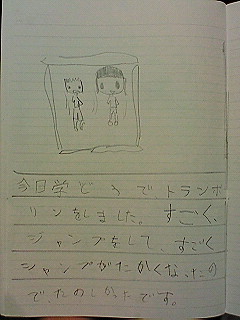 今日学どうでトランポ
リンをしました。すごく、
ジャンプをして、すごく
ジャンプがたかくなったの
で、たのしかったです。